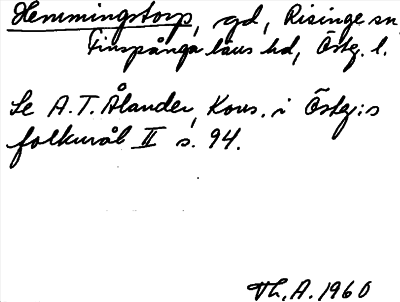 Hemmingstorp, gd, Risinge sn
Finspånga läns hd, Östg. l.
Se A. T. Ålander, Kons. i Östg:s
folkmål II s. 94.
Th. A. 1960